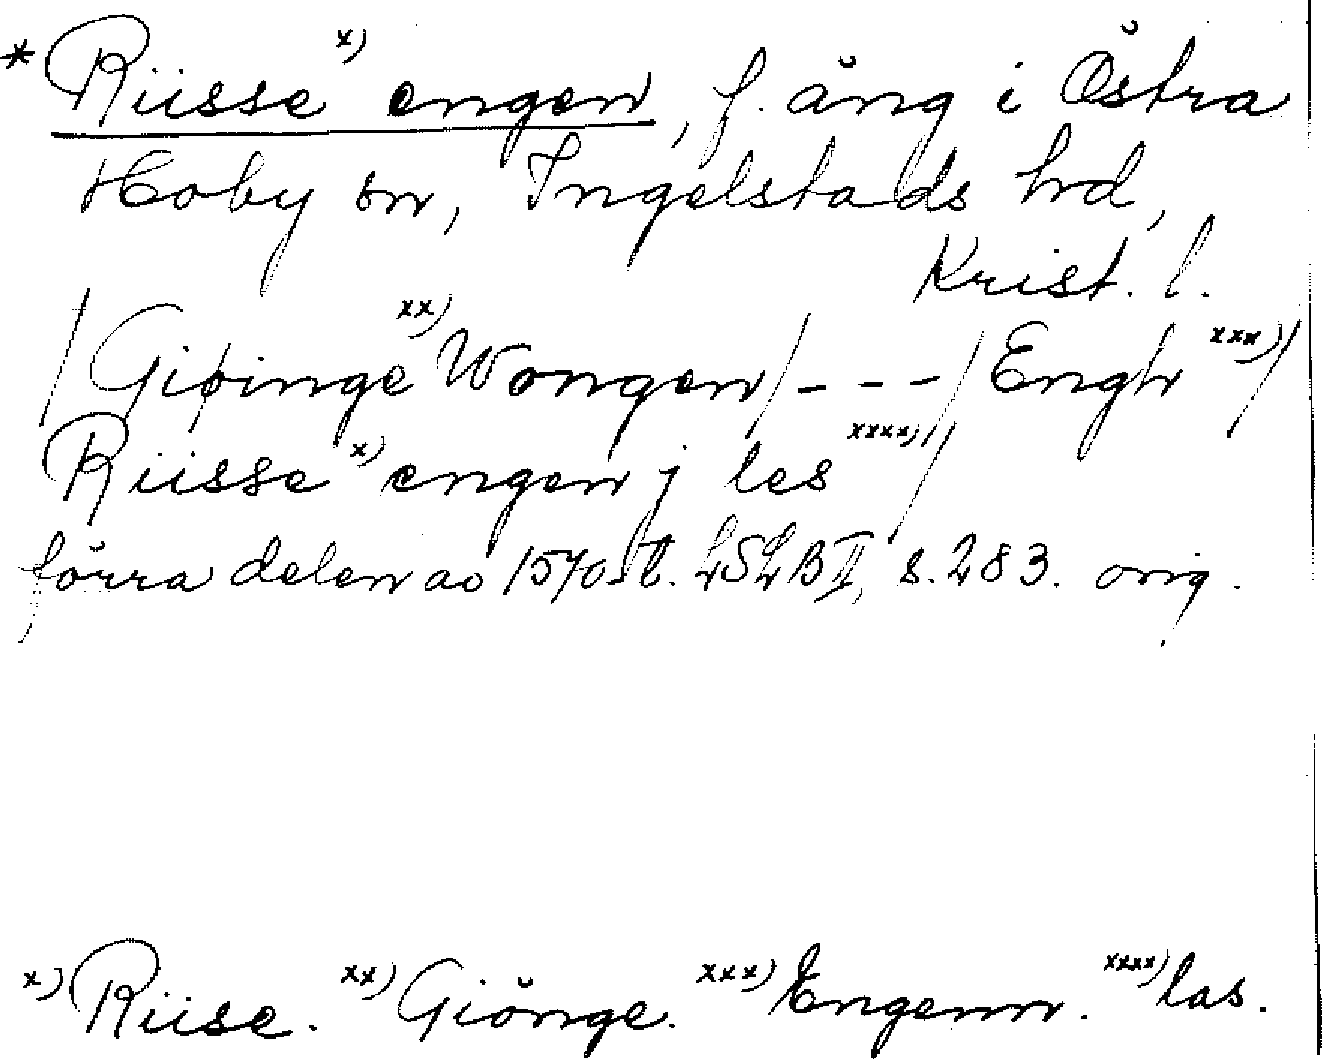 * Riisse x) engen, f. äng i Östra
Hoby sn, Ingelstads hd,
Krist. l.
/Giøinge xx) Wongen/ - - - /Engh xxx)/
Riisse x) engen j les xxxx)//
förra delen av 1570-t. LSLB II, s. 283. orig.
x) Riise. xx) Giönge. xxx) Engenn. xxxx) las.